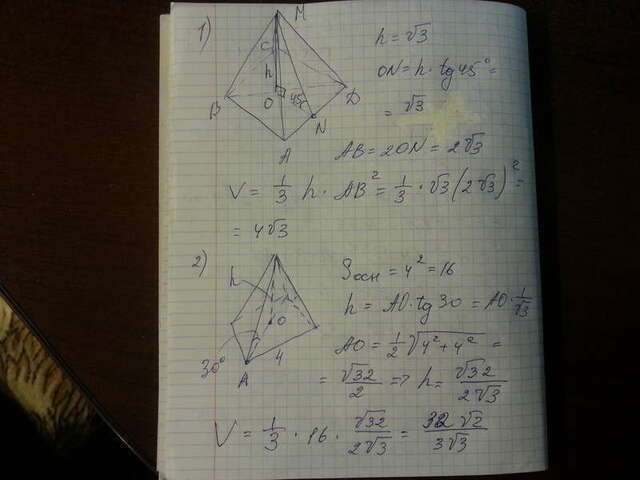 1)
M
C
h
B
O
45°
D
N
A
h = √3
ON = h · tg 45° =
= √3
AB = 2ON = 2√3
V = 1/3 h · AB² = 1/3 · √3 (2√3)² =
= 4√3
2)
h
O
30°
A
4
Sосн = 4² = 16
h = AO · tg 30 = AO · 1/√3
AO = 1/2 √(4² + 4²) =
= √32/2 => h = √32/(2√3)
V = 1/3 · 16 · √32/(2√3) = 32√2/(3√3)